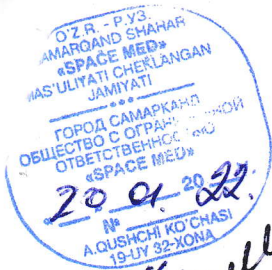 O'Z.R. - Р.УЗ.
SAMARQAND SHAHAR
«SPACE MED»
MAS'ULIYATI CHEKLANGAN
JAMIYATI
ГОРОД САМАРКАНД
ОБЩЕСТВО С ОГРАНИЧЕННОЙ
ОТВЕТСТВЕННОСТЬЮ
«SPACE MED»
20 01 2022
№
A.QUSHCHI KO'CHASI
19-UY 32-XONA